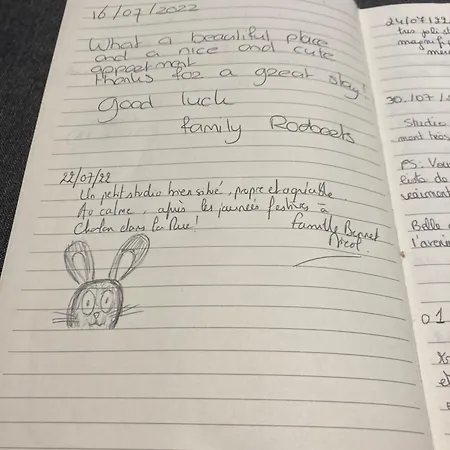 16/07/2022
What a beautiful place
and a nice and cute
appartment
thanks for a great stay!
good luck
family
22/07/22
Un petit studio bien situé, propre et agréable.
Au calme, après les journées festives à
Chalon dans la Rue!
famille Bennet
Nicol
24/07/22
très joli st
magnifi
30/07/
Studio
mont
PS: Vou
liste de
vraiment
Belle
l'aveni
01
et